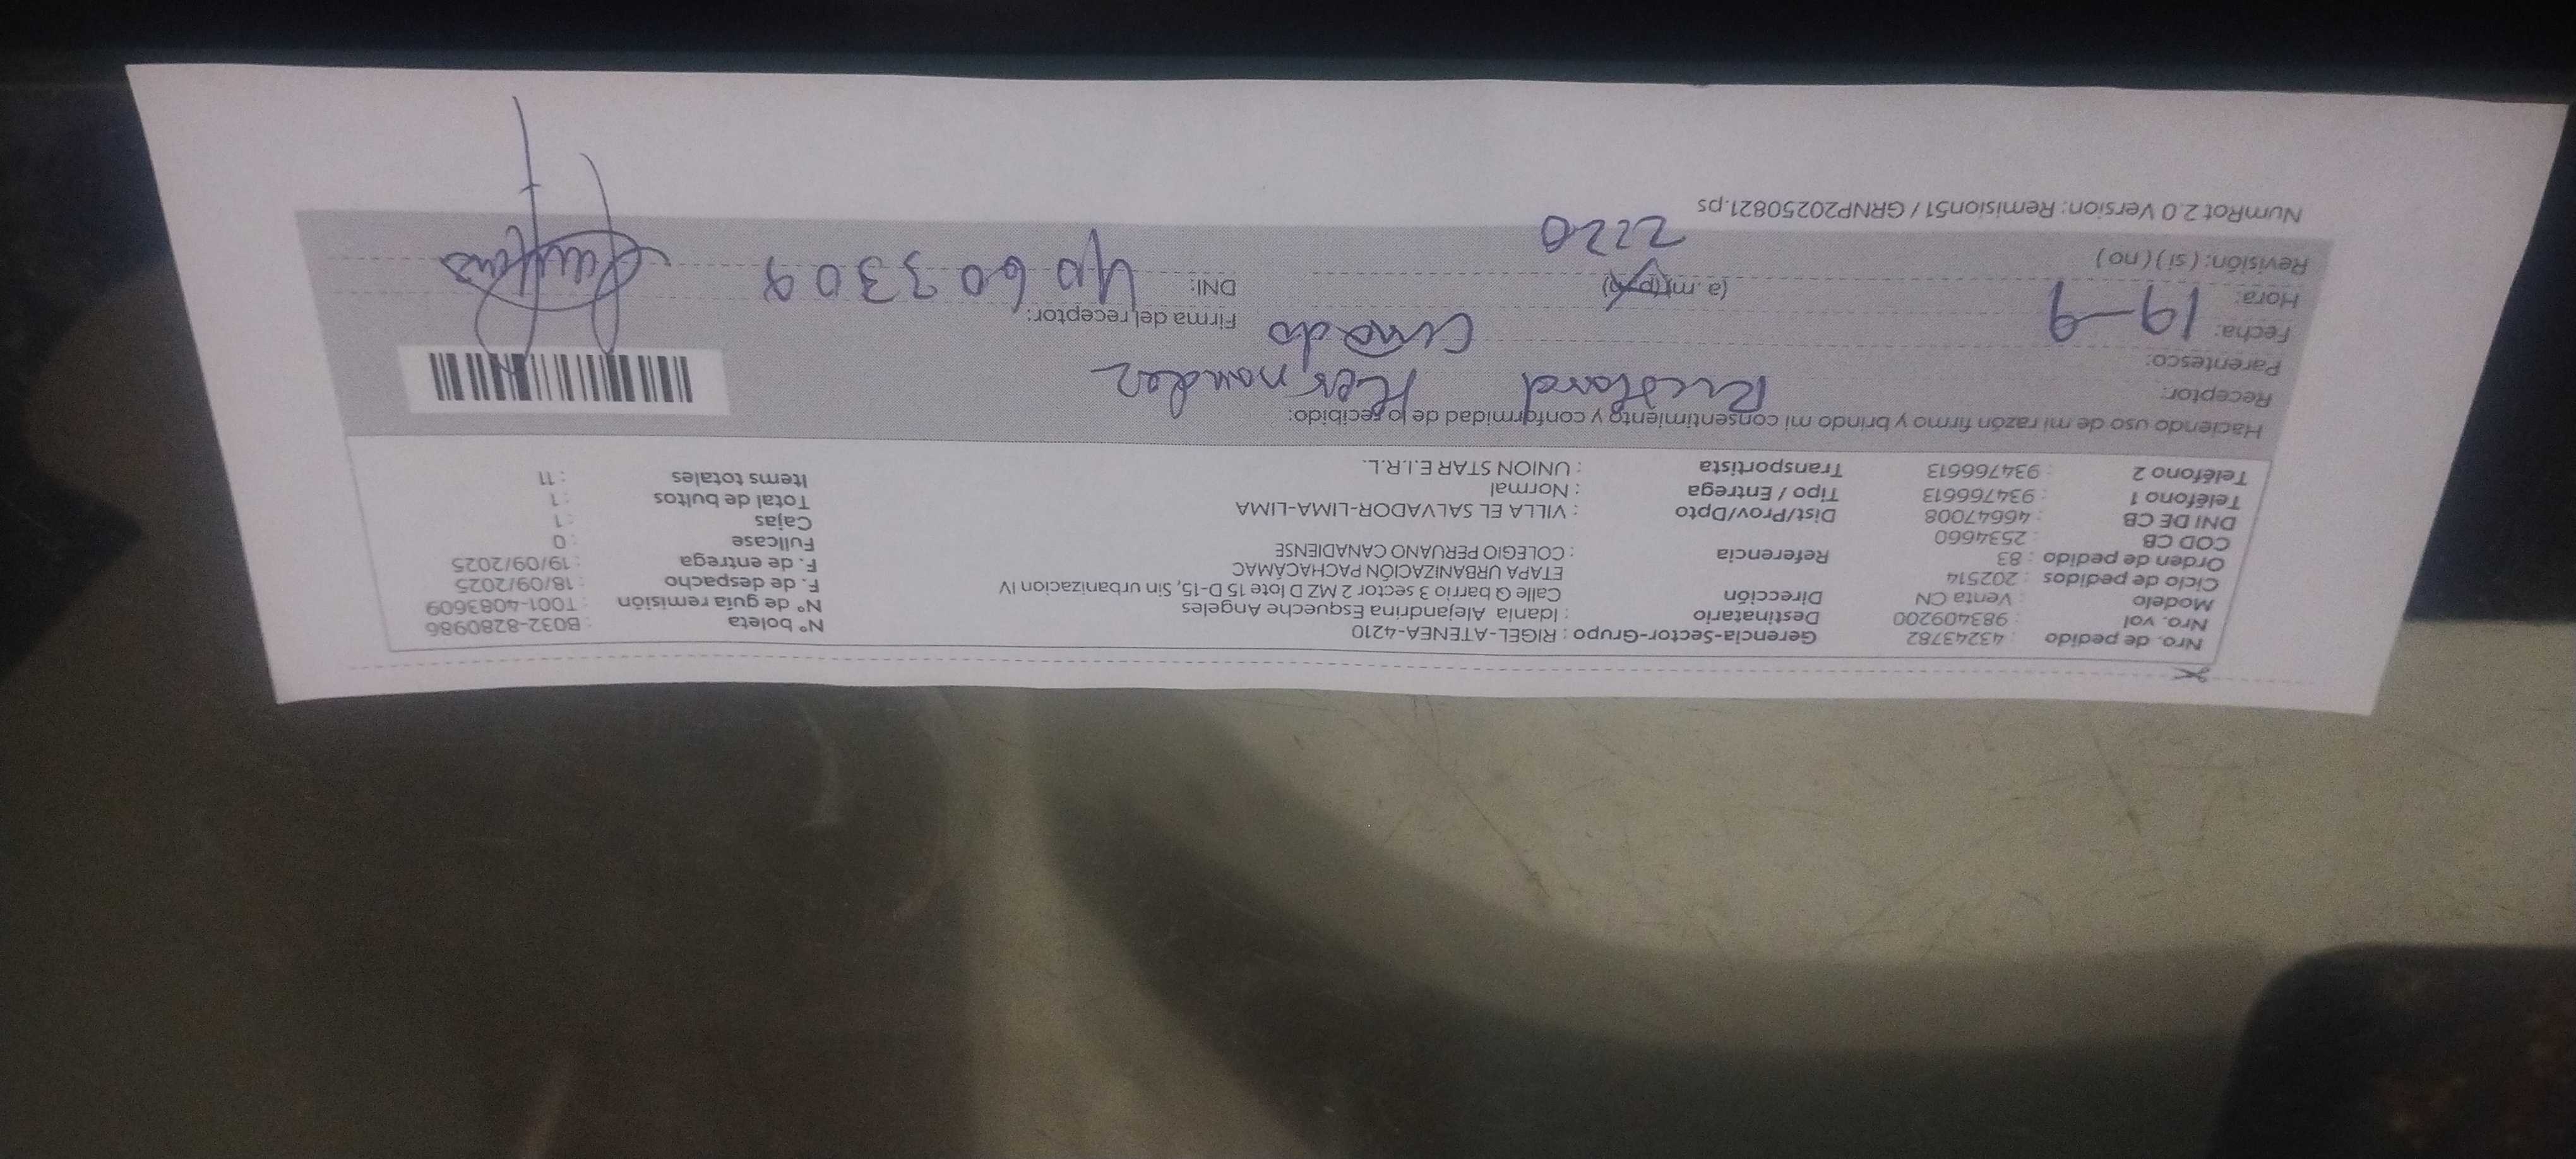 Nro. de pedido : 43243782 Gerencia-Sector-Grupo : RIGEL-ATENEA-4210 N° boleta : B032-8280986
Nro. vol : 983409200 Destinatario : Idania Alejandrina Esqueche Angeles N° de guía remisión : T001-4083609
Modelo : Venta CN Dirección Calle Q barrio 3 sector 2 MZ D lote 15 D-15, Sin urbanizacion IV F. de despacho : 18/09/2025
Ciclo de pedidos : 202514 ETAPA URBANIZACIÓN PACHACÁMAC F. de entrega : 19/09/2025
Orden de pedido : 83 Referencia : COLEGIO PERUANO CANADIENSE Fullcase : 0
COD CB : 2534660 Cajas : 1
DNI DE CB : 46647008 Dist/Prov/Dpto : VILLA EL SALVADOR-LIMA-LIMA Total de bultos : 1
Teléfono 1 : 934766613 Tipo / Entrega : Normal Items totales : 11
Teléfono 2 : 934766613 Transportista : UNION STAR E.I.R.L.
Haciendo uso de mi razón firmo y brindo mi consentimiento y conformidad de lo recibido:
Receptor: Hernandez
Parentesco:
Fecha: 19-9 Firma del receptor:
Hora: (a.m) (p.m) DNI: 40603309
Revisión: ( si ) ( no ) 2220
NumRot 2.0 Version: Remision51 / GRNP20250821.ps